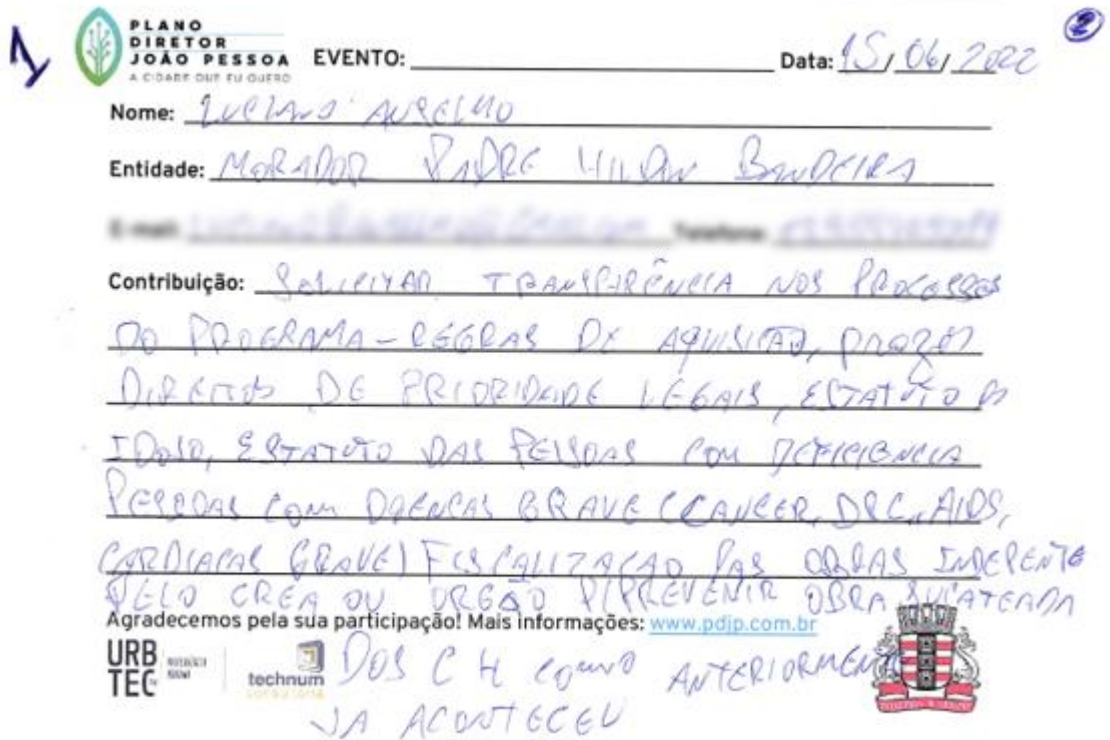 1
2
PLANO
DIRETOR
JOÃO PESSOA
A CIDADE QUE EU QUERO
EVENTO: Data: 15/06/2022
Nome: LUCIANO ANSELMO
Entidade: MORADOR PADRE BANDEIRA
E-mail: Telefone:
Contribuição: SOLICITAR TRANSPARÊNCIA NOS PROCESSOS
DO PROGRAMA - REGRAS DE AQUISICAO, PRAZOS
DIREITOS DE PRIORIDADE LEGAIS, ESTATUTO DO
IDOSO, ESTATUTO DAS PESSOAS COM DEFICIENCIA
PESSOAS COM DOENCAS GRAVE (CANCER, DRC, AIDS,
CARDIACAS GRAVE) FISCALIZACAO DAS OBRAS INDEPENTE
PELO CREA OU ORGÃO P/PREVENIR OBRA SUCATEADA
Agradecemos pela sua participação! Mais informações: www.pdjp.com.br
URB
TEC
technum
consultoria
DOS C H COMO ANTERIORMENTE
JA ACONTECEU